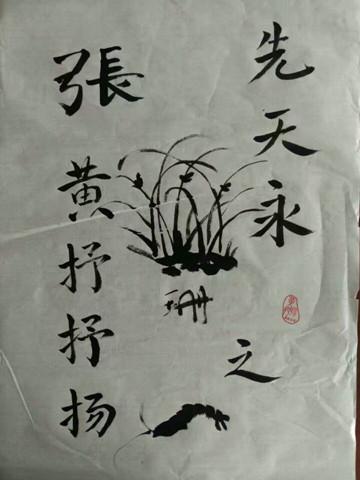 先天永之
珊
張黄抒抒扬